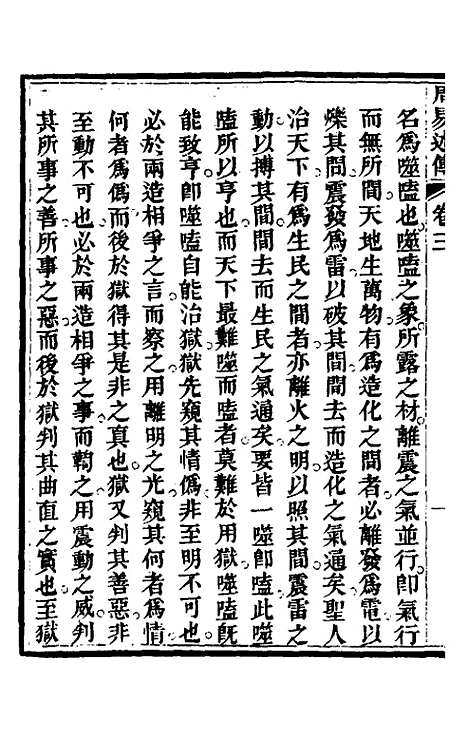 周易述傳 卷三 一
名爲噬嗑也噬嗑之象所露之材離震之氣並行卽氣行
而無所間天地生萬物有爲造化之間者必離發爲電以
爍其間震發爲雷以破其間間去而造化之氣通矣聖人
治天下有爲生民之間者亦離火之明以照其間震雷之
動以搏其間間去而生民之氣通矣要皆一噬卽嗑此噬
嗑所以亨也而天下最難噬而嗑者莫難於用獄噬嗑旣
能致亨卽噬嗑自能治獄獄先窺其情僞非至明不可也
必於兩造相爭之言而察之用離明之光窺其何者爲情
何者爲僞而後於獄得其是非之真也獄又判其善惡非
至動不可也必於兩造相爭之事而鞫之用震動之威判
其所事之善所事之惡而後於獄判其曲直之實也至獄